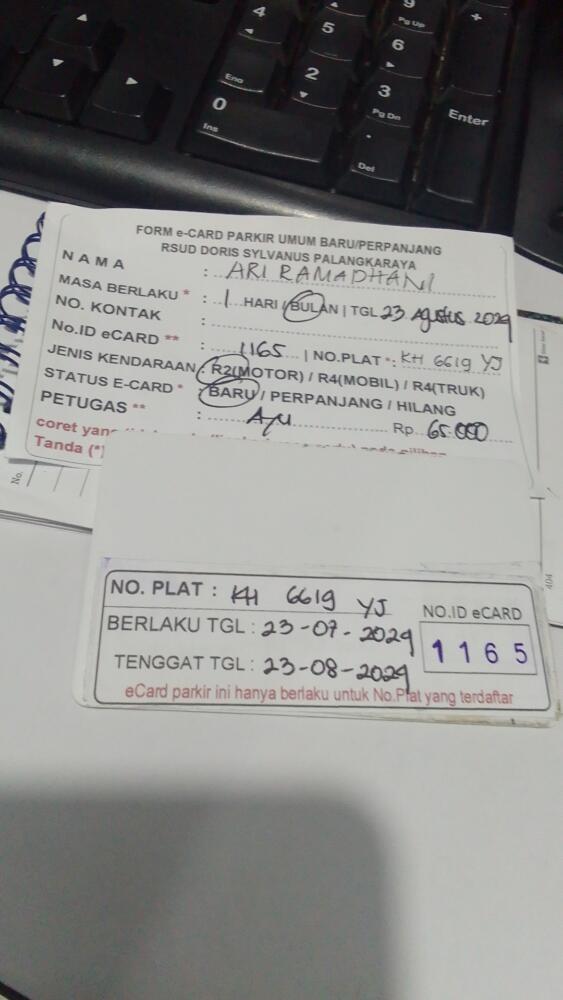 4
5
6
9
Pg Up
+
End
2
3
Pg Dn
Enter
0
Ins
.
Del
FORM e-CARD PARKIR UMUM BARU/PERPANJANG
RSUD DORIS SYLVANUS PALANGKARAYA
NAMA : ARI RAMADHANI
MASA BERLAKU * : 1 HARI / BULAN | TGL 23 Agustus 2024
NO. KONTAK :
No.ID eCARD ** : 1165 | NO.PLAT *: KH 6619 YJ
JENIS KENDARAAN : R2(MOTOR) / R4(MOBIL) / R4(TRUK)
STATUS E-CARD * : BARU / PERPANJANG / HILANG
PETUGAS ** : Rp. 65.000
coret yang
Tanda (*)
No.
NO. PLAT : KH 6619 YJ
BERLAKU TGL : 23-07-2024
TENGGAT TGL : 23-08-2024
NO.ID eCARD
1165
eCard parkir ini hanya berlaku untuk No.Plat yang terdaftar